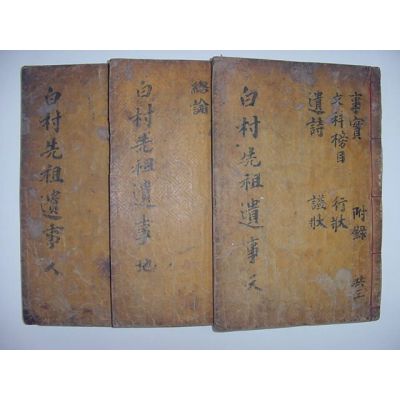 事實
文科榜目
遺詩
附錄
行狀
狀
共三
白村先祖遺事 天
總論
白村先祖遺事 地
白村先祖遺事 人